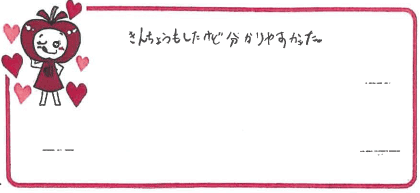 きんちょうもしたけど分かりやすかった。